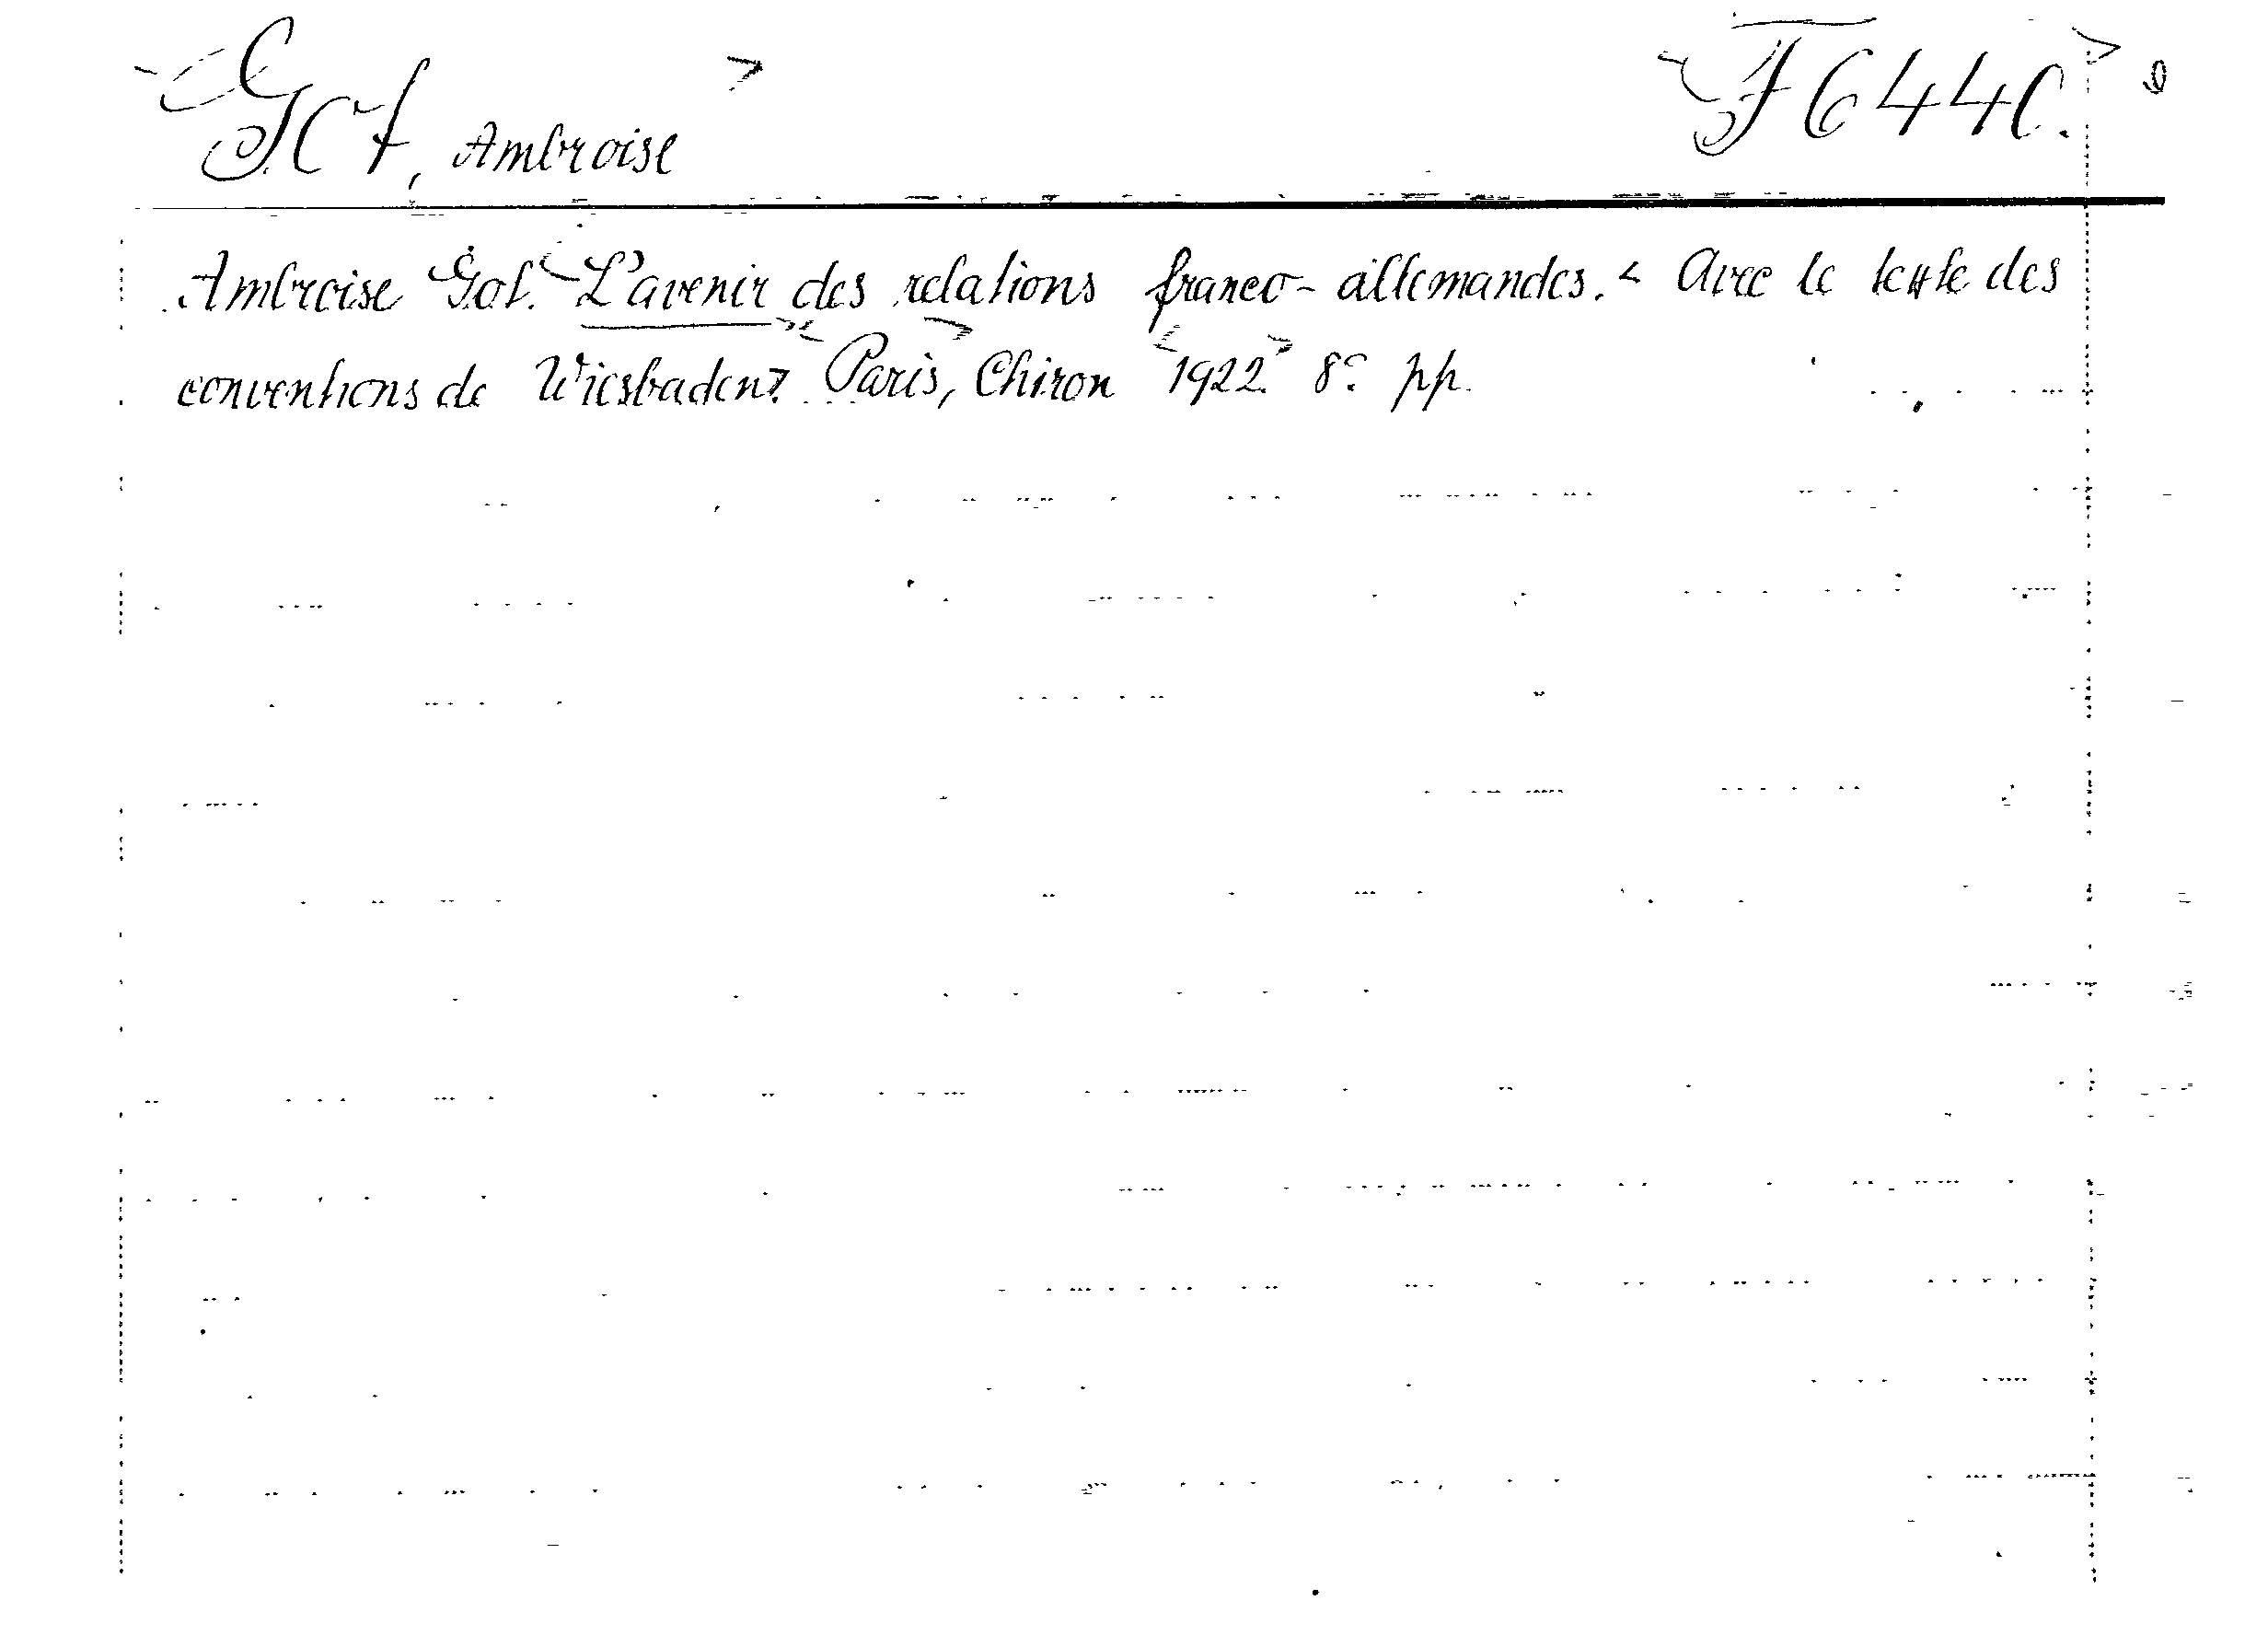 Got, Ambroise F 6440.
Ambroise Got. L'avenir des relations franco-allemandes. < Avec le texte des
conventions de Wiesbaden>. Paris, Chiron 1922. 8° pp.